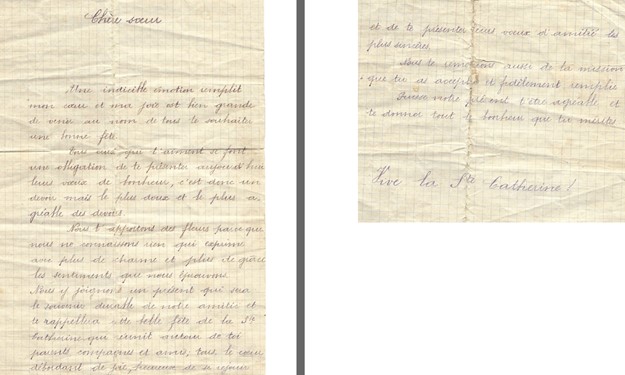 Chère sœur
Une indicible émotion remplit
mon cœur et ma joie est bien grande
de venir au nom de tous te souhaiter
une bonne fête.
Tous ceux qui t'aiment se font
une obligation de te présenter aujourd'hui
leurs vœux de bonheur, c'est donc un
devoir mais le plus doux et le plus a-
gréable des devoirs.
Nous t'apportons des fleurs parce que
nous ne connaissons rien qui exprime
avec plus de charme et plus de grâce
les sentiments que nous éprouvons.
Nous y joignons un présent qui sera
le souvenir durable de notre amitié et
te rappellera cette belle fête de la Ste
Catherine qui réunit autour de toi
parents compagnes et amis, tous le cœur
débordant de joie, heureux de se réjouir
et de te présenter leurs vœux d'amitié les
plus sincères.
Nous te remercions aussi de la mission
que tu as acceptée et fidèlement remplie
Puisse notre présent t'être agréable et
te donner tout le bonheur que tu mérites
Vive la Ste Catherine!